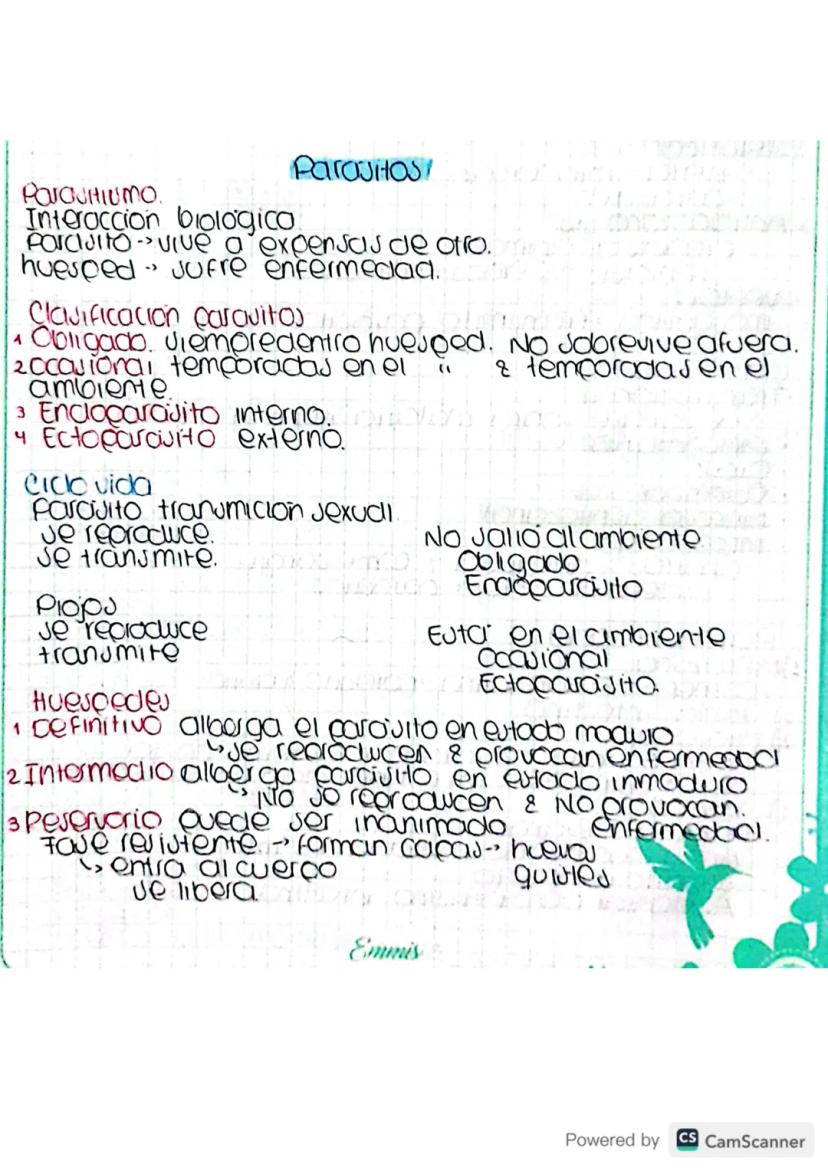 Parasitos
Parasitismo.
Interacción biológica
Parasito → vive a expensas de otro.
huesped → sufre enfermedad.
Clasificación parasitos
1 Obligado. siempre dentro huesped. No sobrevive afuera.
2 ocasional temporadas en el " & temporadas en el
ambiente.
3 Endoparasito interno.
4 Ectoparasito externo.
Ciclo vida
Parasito transmicion sexual
se reproduce.
se transmite.
No salio al ambiente
Obligado
Endoparasito
Piojos
se reproduce
transmite
Está en el ambiente
Ocasional
Ectoparasito.
Huespedes
1 Definitivo alberga el parasito en estado maduro
↳ se reproducen & provocan enfermedad
2 Intermedio alberga parasito en estado inmaduro
↳ No se reproducen & No provocan.
enfermedad.
3 Reservorio Puede ser inanimado
Fase resistente → forman capas → huevos
↳ entra al cuerpo quistes
se libera
Emmis
Powered by CS CamScanner